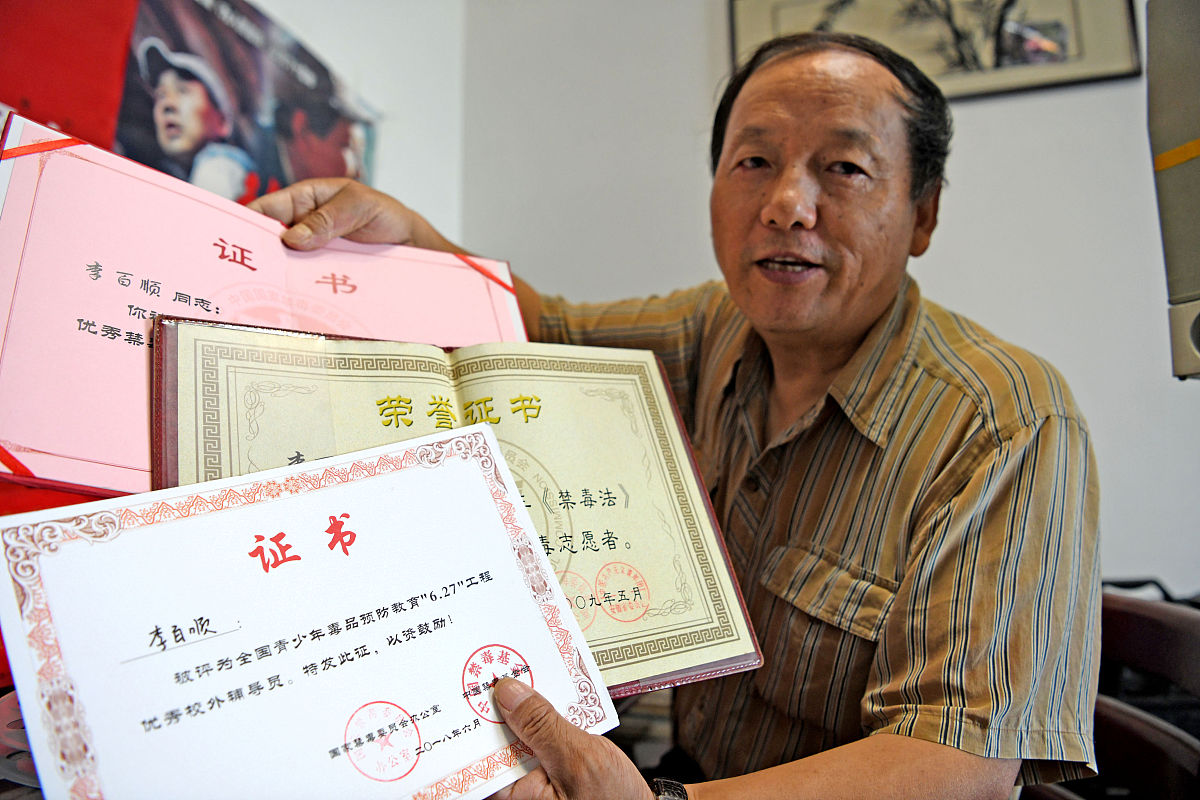 证书
李百顺 同志：
你
优秀禁
荣誉证书
李
《禁毒法》
毒志愿者。
〇九年五月
证书
李百顺 :
被评为全国青少年毒品预防教育"6.27"工程
优秀校外辅导员。特发此证，以资鼓励！
国家禁毒委员会办公室
二〇一八年六月